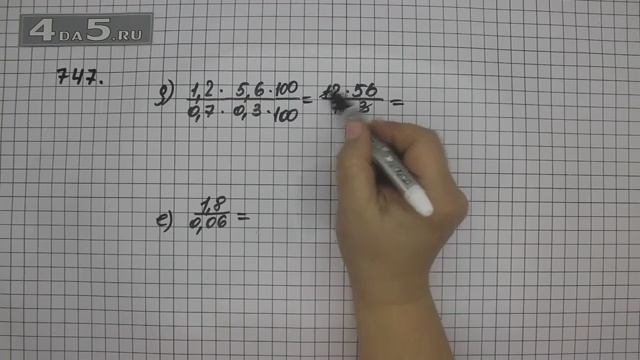 4DA5.RU
747.
д) 1,2 · 5,6 · 100 / 0,7 · 0,3 · 100 = 12 · 56 / 7 · 3 =
е) 1,8 / 0,06 =